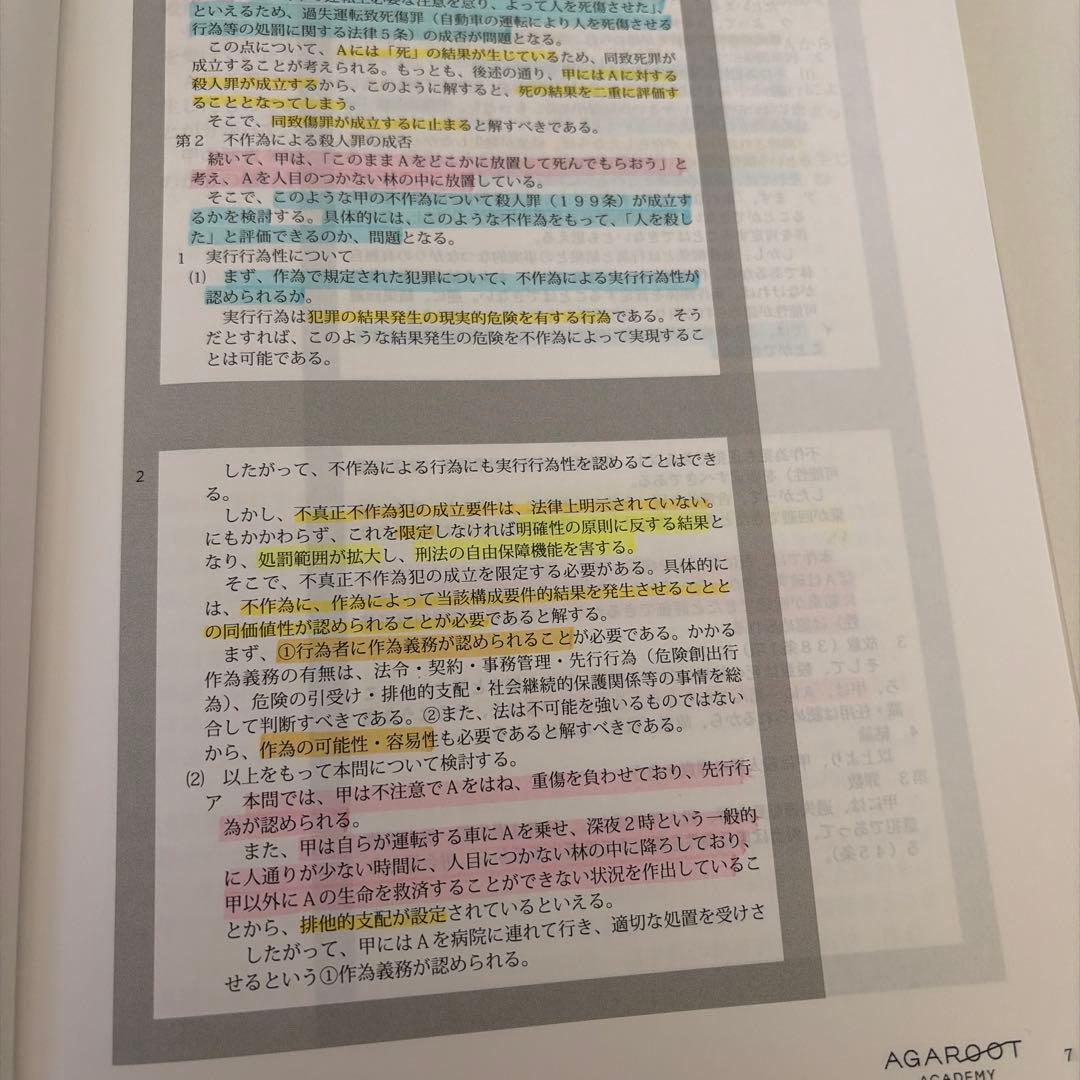 要な注意を怠り、よって人を死傷させた」
といえるため、過失運転致死傷罪（自動車の運転により人を死傷させる
行為等の処罰に関する法律５条）の成否が問題となる。
この点について、Ａには「死」の結果が生じているため、同致死罪が
成立することが考えられる。もっとも、後述の通り、甲にはＡに対する
殺人罪が成立するから、このように解すると、死の結果を二重に評価す
ることとなってしまう。
そこで、同致傷罪が成立するに止まると解すべきである。
第２　不作為による殺人罪の成否
続いて、甲は、「このままＡをどこかに放置して死んでもらおう」と
考え、Ａを人目のつかない林の中に放置している。
そこで、このような甲の不作為について殺人罪（１９９条）が成立す
るかを検討する。具体的には、このような不作為をもって、「人を殺し
た」と評価できるのか、問題となる。
１　実行行為性について
⑴　まず、作為で規定された犯罪について、不作為による実行行為性が
認められるか。
実行行為は犯罪の結果発生の現実的危険を有する行為である。そう
だとすれば、このような結果発生の危険を不作為によって実現するこ
とは可能である。
2
したがって、不作為による行為にも実行行為性を認めることはでき
る。
しかし、不真正不作為犯の成立要件は、法律上明示されていない。
にもかかわらず、これを限定しなければ明確性の原則に反する結果と
なり、処罰範囲が拡大し、刑法の自由保障機能を害する。
そこで、不真正不作為犯の成立を限定する必要がある。具体的に
は、不作為に、作為によって当該構成要件的結果を発生させることと
の同価値性が認められることが必要であると解する。
まず、①行為者に作為義務が認められることが必要である。かかる
作為義務の有無は、法令・契約・事務管理・先行行為（危険創出行
為）、危険の引受け・排他的支配・社会継続的保護関係等の事情を総
合して判断すべきである。②また、法は不可能を強いるものではない
から、作為の可能性・容易性も必要であると解すべきである。
⑵　以上をもって本問について検討する。
ア　本問では、甲は不注意でＡをはね、重傷を負わせており、先行行
為が認められる。
また、甲は自らが運転する車にＡを乗せ、深夜２時という一般的
に人通りが少ない時間に、人目につかない林の中に降ろしており、
甲以外にＡの生命を救済することができない状況を作出しているこ
とから、排他的支配が設定されているといえる。
したがって、甲にはＡを病院に連れて行き、適切な処置を受けさ
せるという①作為義務が認められる。
AGAROOT
ACADEMY
7